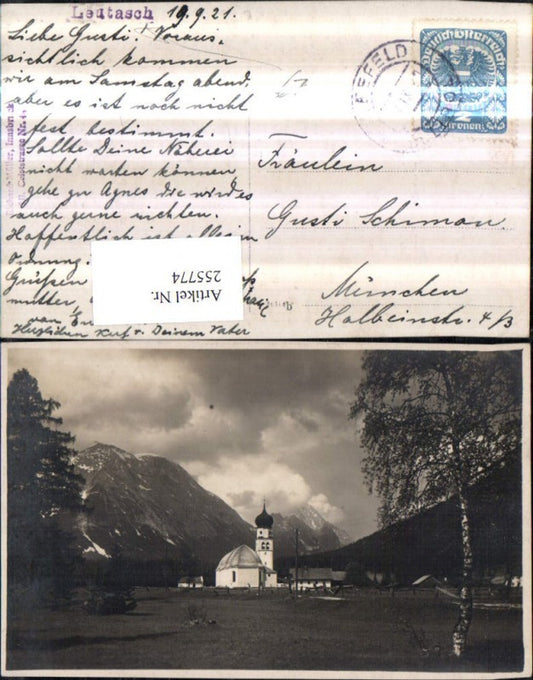 Leutasch 19.9.21.
Liebe Gusti! Voraus-
sichtlich kommen
wir am Samstag abend,
aber es ist noch nicht
fest bestimmt.
Sollte Deine Näherei
nicht warten können,
gehe zu Agnes die wird es
auch gerne richten.
Hoffentlich ist alles in
Ordnung.
Grüßen
mutter,
von
Herzlichen Kuß v. Deinem Vater
Deutschösterreich
2
Kronen
EEFELD
Fräulein
Gusti Schimon
München
Holbeinstr. 4/3
Artikel Nr.
255774